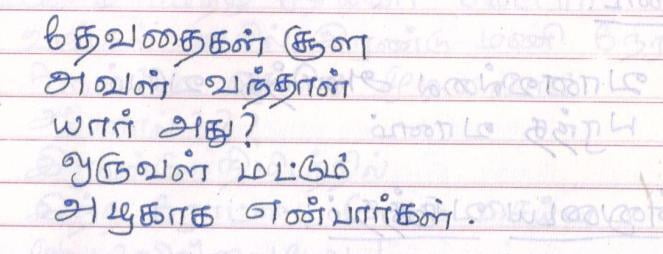 தேவதைகள் சூள
அவள் வந்தாள்
யார் அது?
ஒருவள் மட்டும்
அழகாக என்பார்கள்.